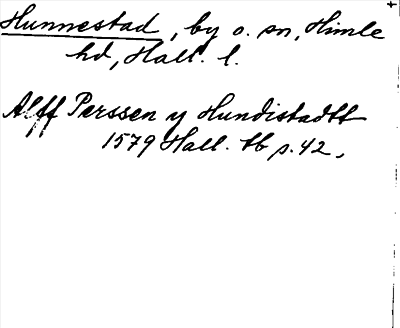 Hunnestad, by o. sn, Himle
hd, Hall. l.
Alff Perssen y Hundistadtt
1579 Hall. tb p. 42.